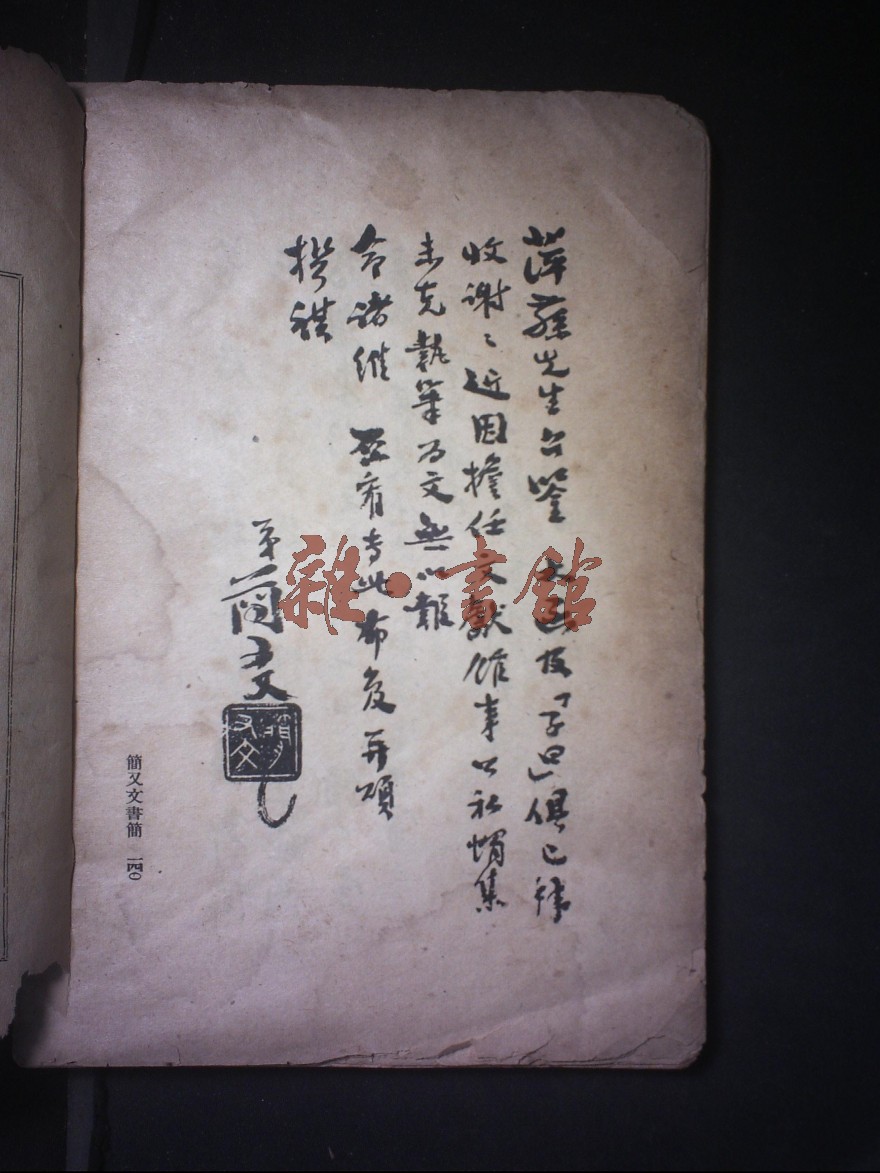 萍蓀先生台鑒 大函及「子曰」俱已拜
收謝〻近因擔任文獻館事公私蝟集
未克執筆為文無以報
命諸維 亞宥專此布复并頌
撰祺
弟簡又文
簡又文
簡又文書簡 一四〇
雜·書館